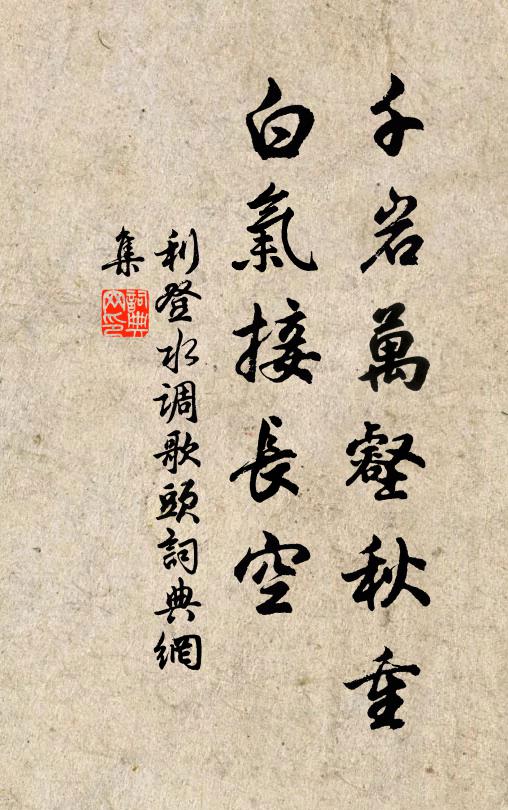 千岩萬壑秋重
白氣接長空
利登水调歌頭詞典網
集
詞典
网印